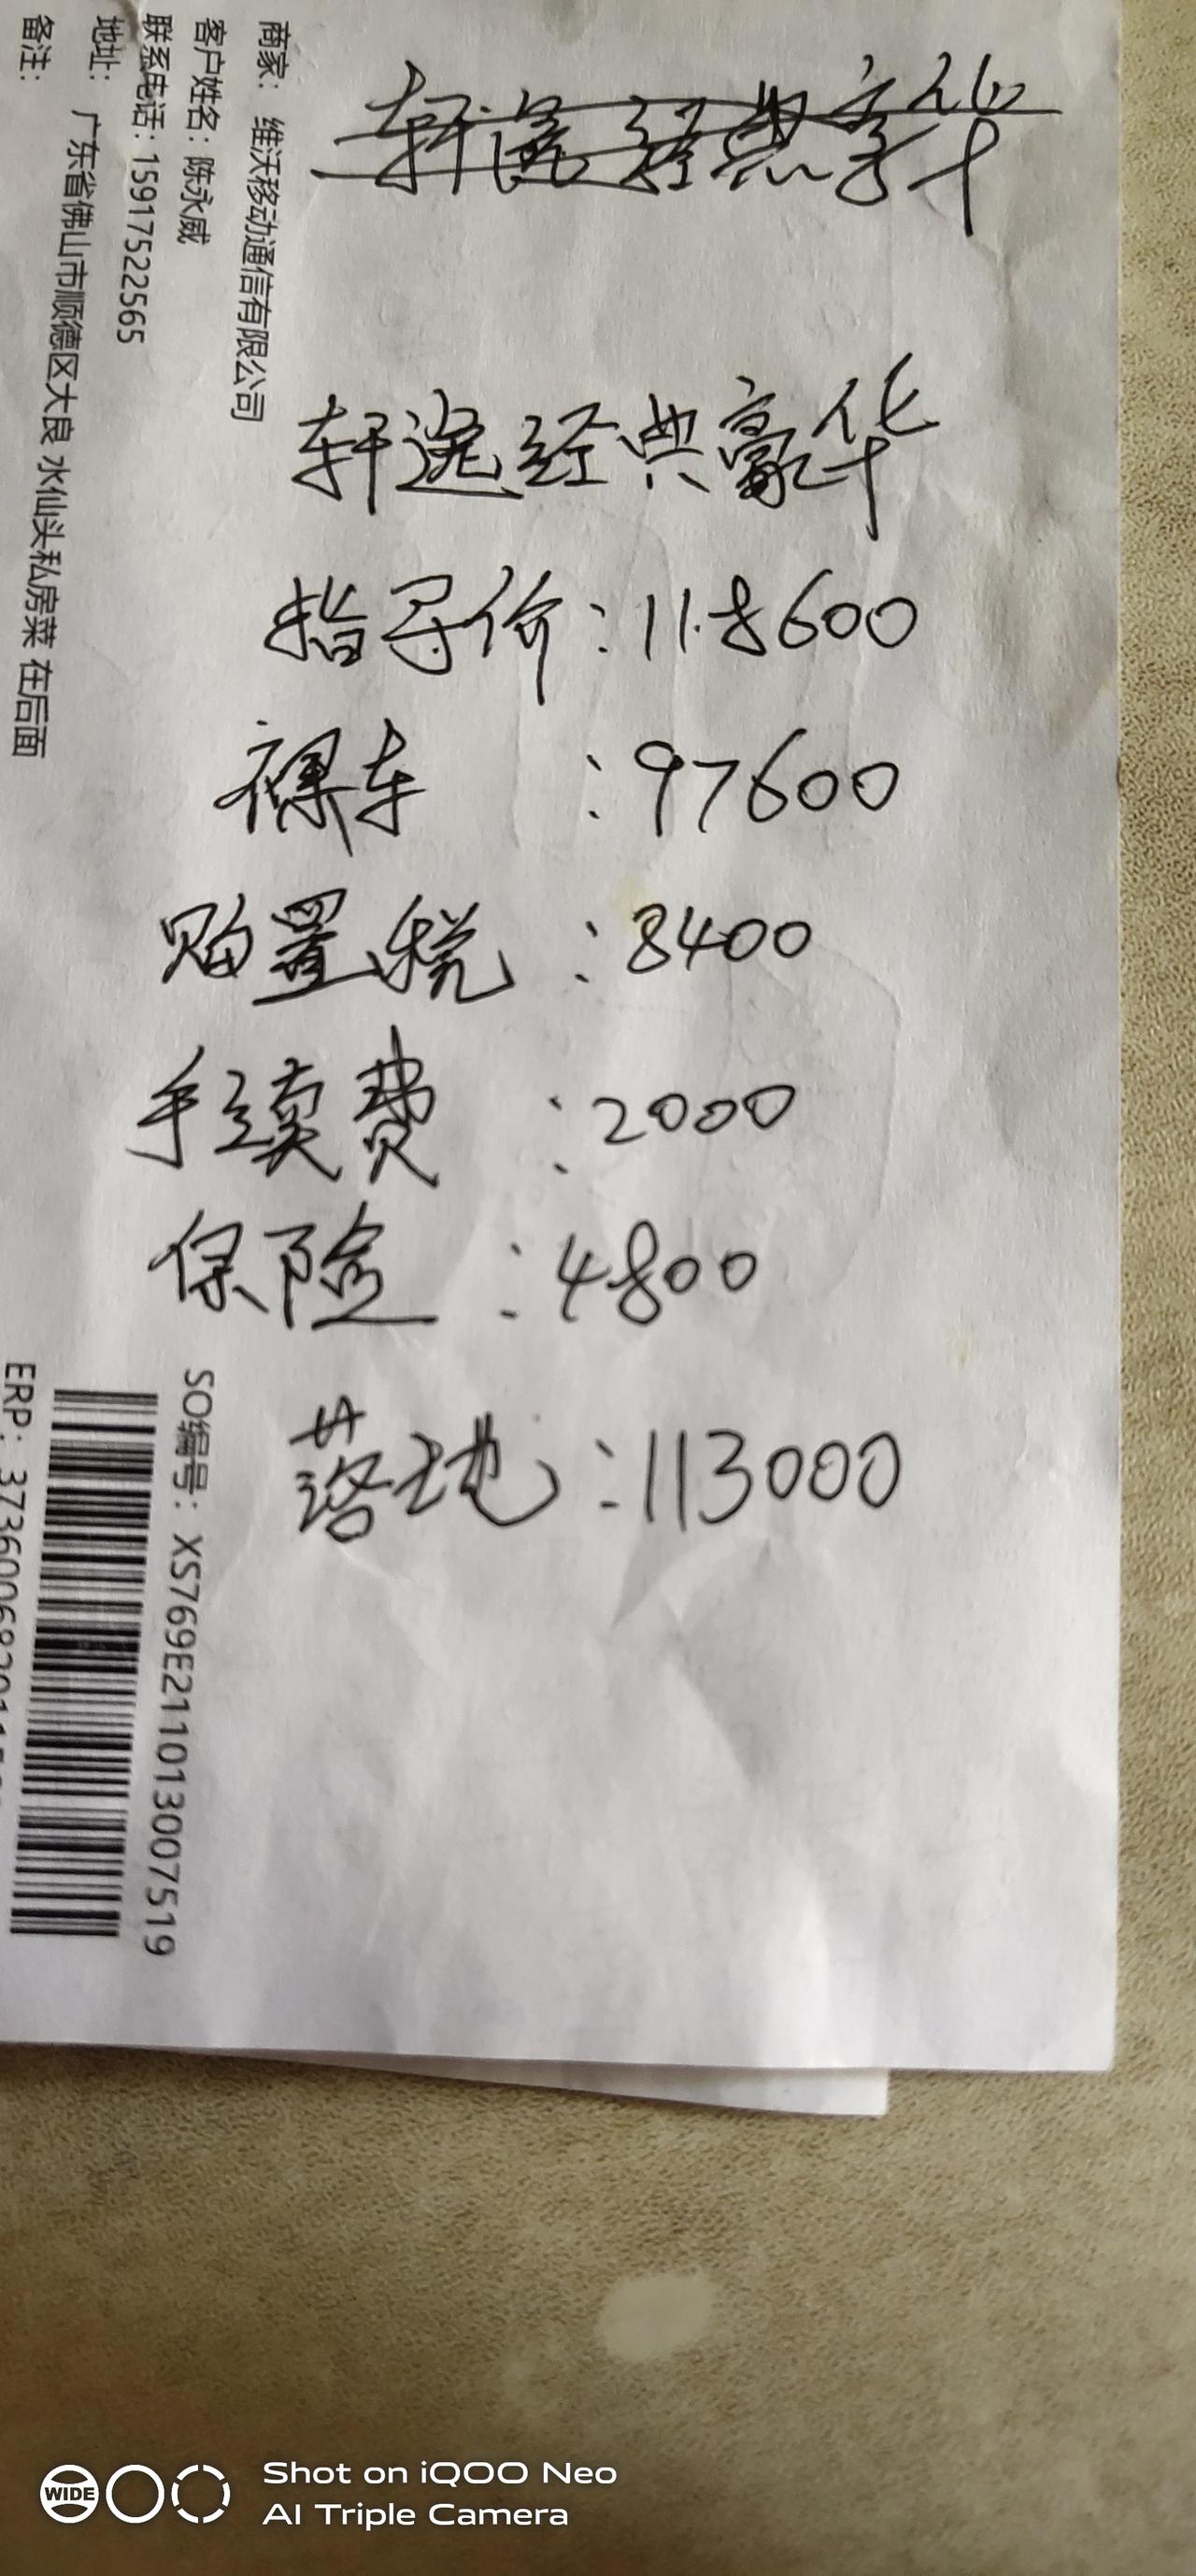 轩逸经典豪华
轩逸经典豪华
指导价：118600
裸车：97600
购置税：8400
手续费：2000
保险：4800
落地：113000
商家： 维沃移动通信有限公司
客户姓名：陈永威
联系电话：15917522565
地址： 广东省佛山市顺德区大良 水仙头私房菜 在后面
备注：
SO编号：XS769E211013007519
ERP：
WIDE
Shot on iQOO Neo
AI Triple Camera